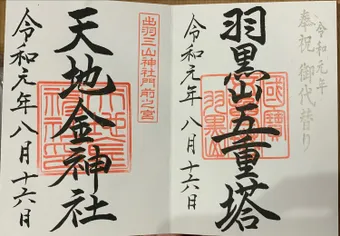 奉祝 御代替り
令和元年
羽黒山五重塔
國寶
羽黒山
令和元年八月十六日
出羽三山神社門前之宮
天地金神社
令和元年八月十六日